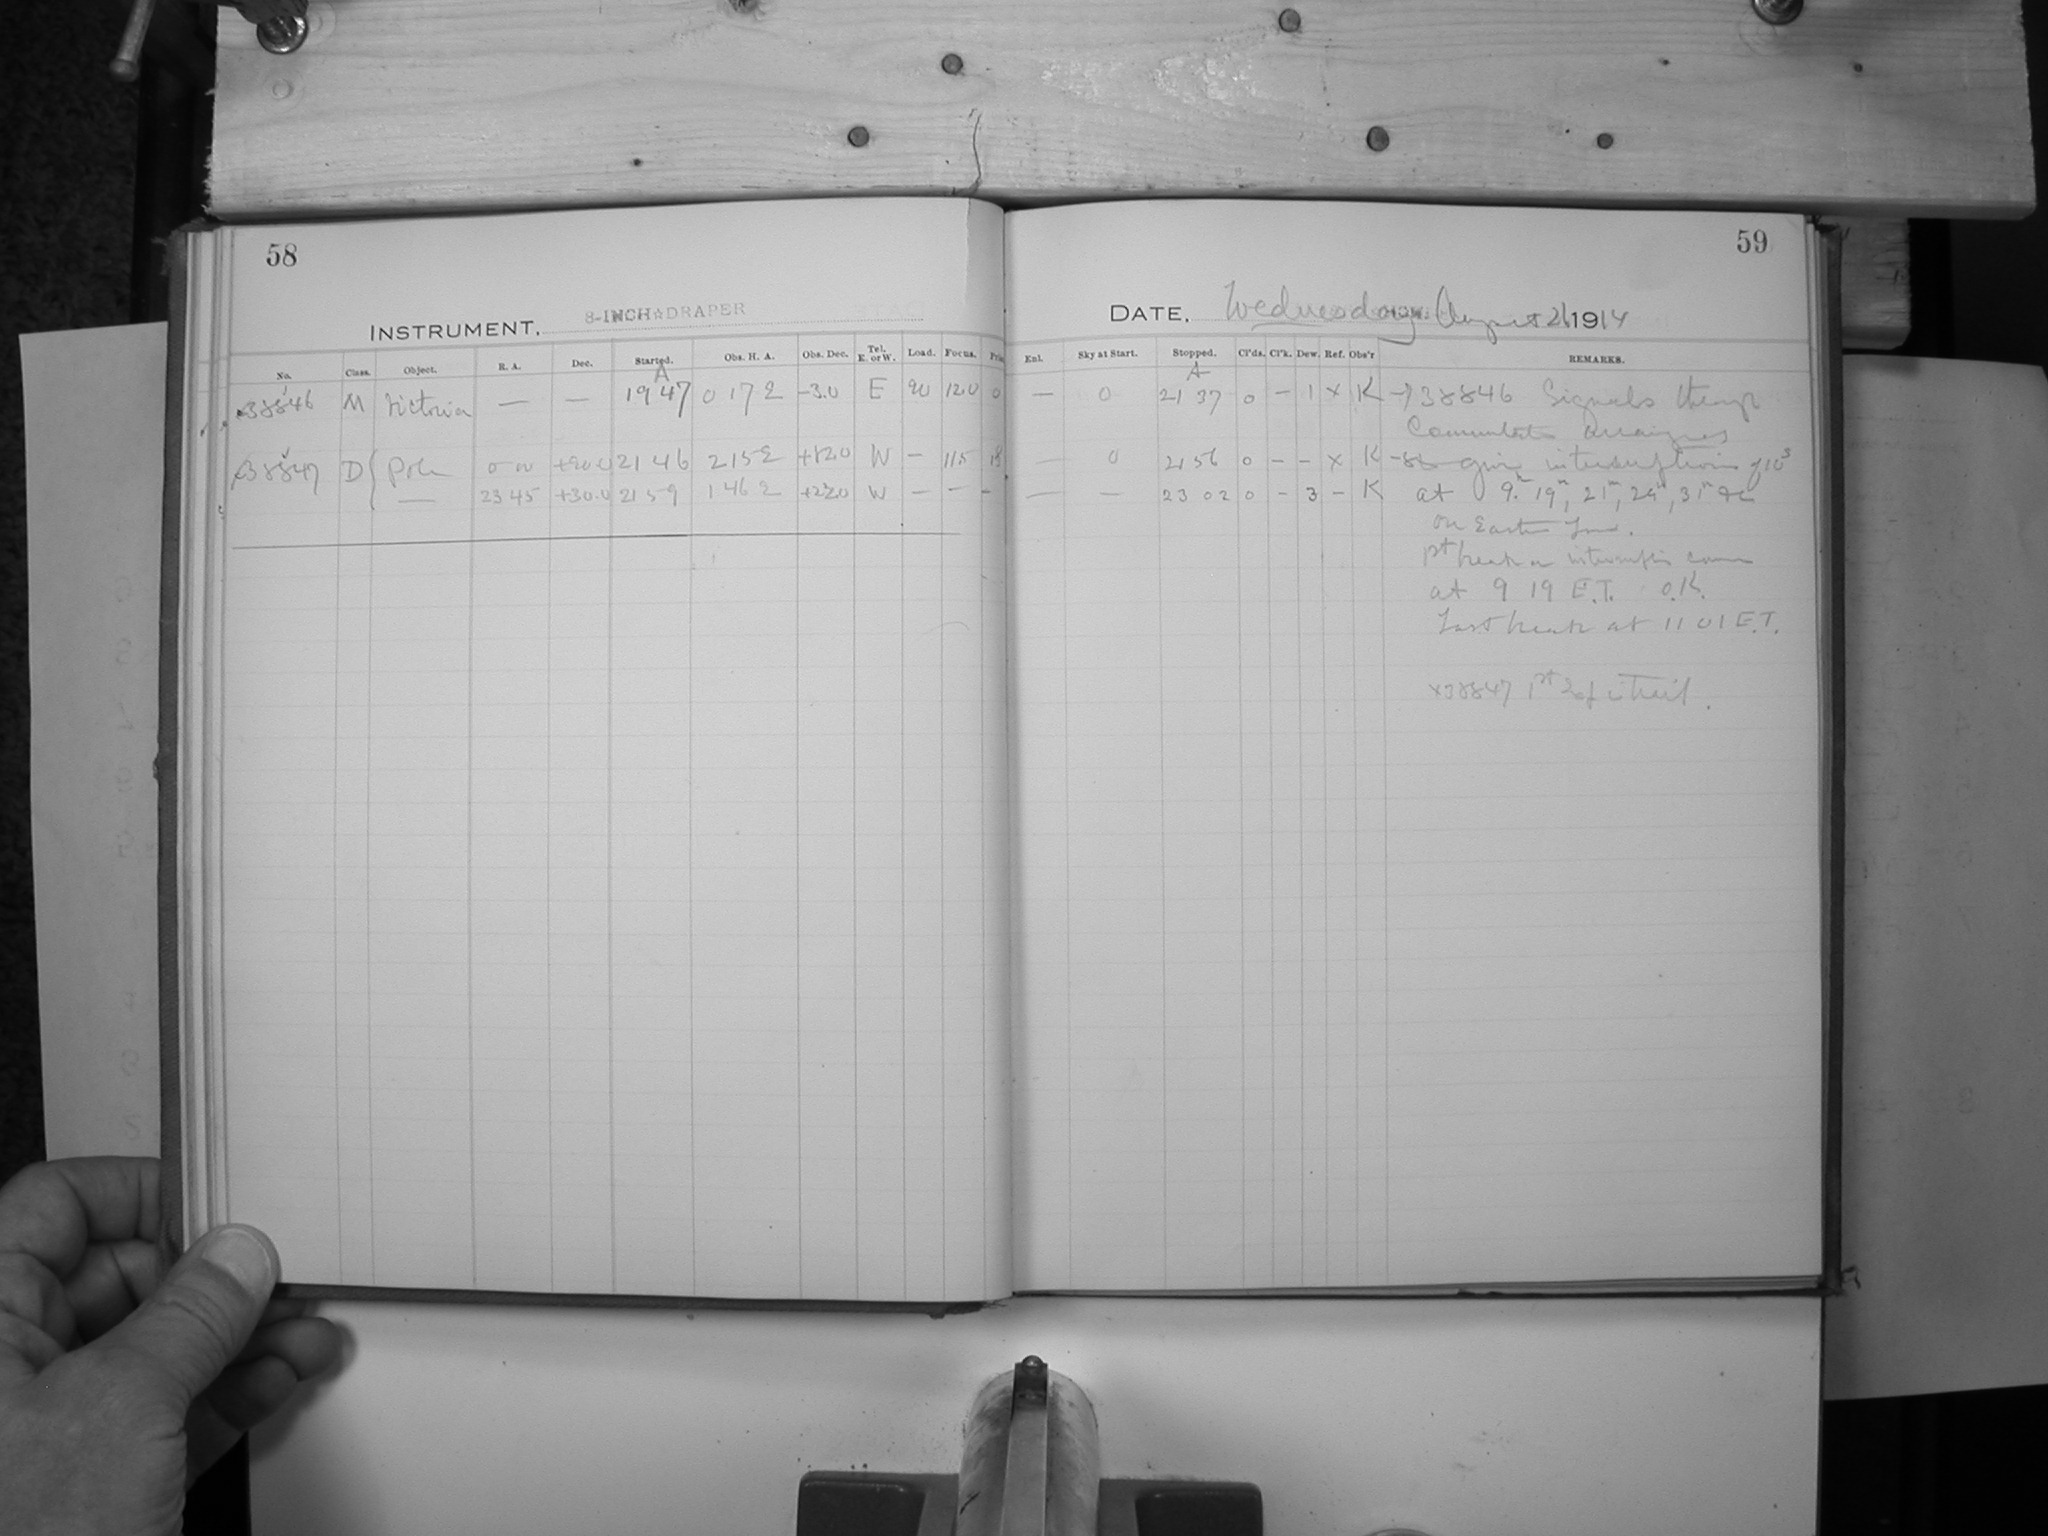 58
INSTRUMENT. 8-INCH DRAPER
No. Class. Object. R. A. Dec. Started. Obs. H. A. Obs. Dec. Tel. E. or W. Load. Focus. Pris
A
38846 M Victoria — — 19 47 0 17 E -3.0 E 20 12.0 0
38847 D Pole 0 00 +90.0 21 46 2 15 E +12.0 W — 11.5
— 23 45 +30.0 21 59 1 46 E +22.0 W — — -
59
DATE. Wednesday August 26 1914
Enl. Sky at Start. Stopped. Cl'ds. Cl'k. Dew. Ref. Obs'r REMARKS.
A
— 0 21 37 0 - 1 x K 38846 Signals
— 0 21 56 0 - - x K give interruptions of 10s
— — 23 02 0 - 3 - K at 9h 19m, 21m, 31m &c
on Eastern Time.
1st break or interruption
at 9 19 E.T. O.K.
Last break at 11 01 E.T.
x38847 1st trail.